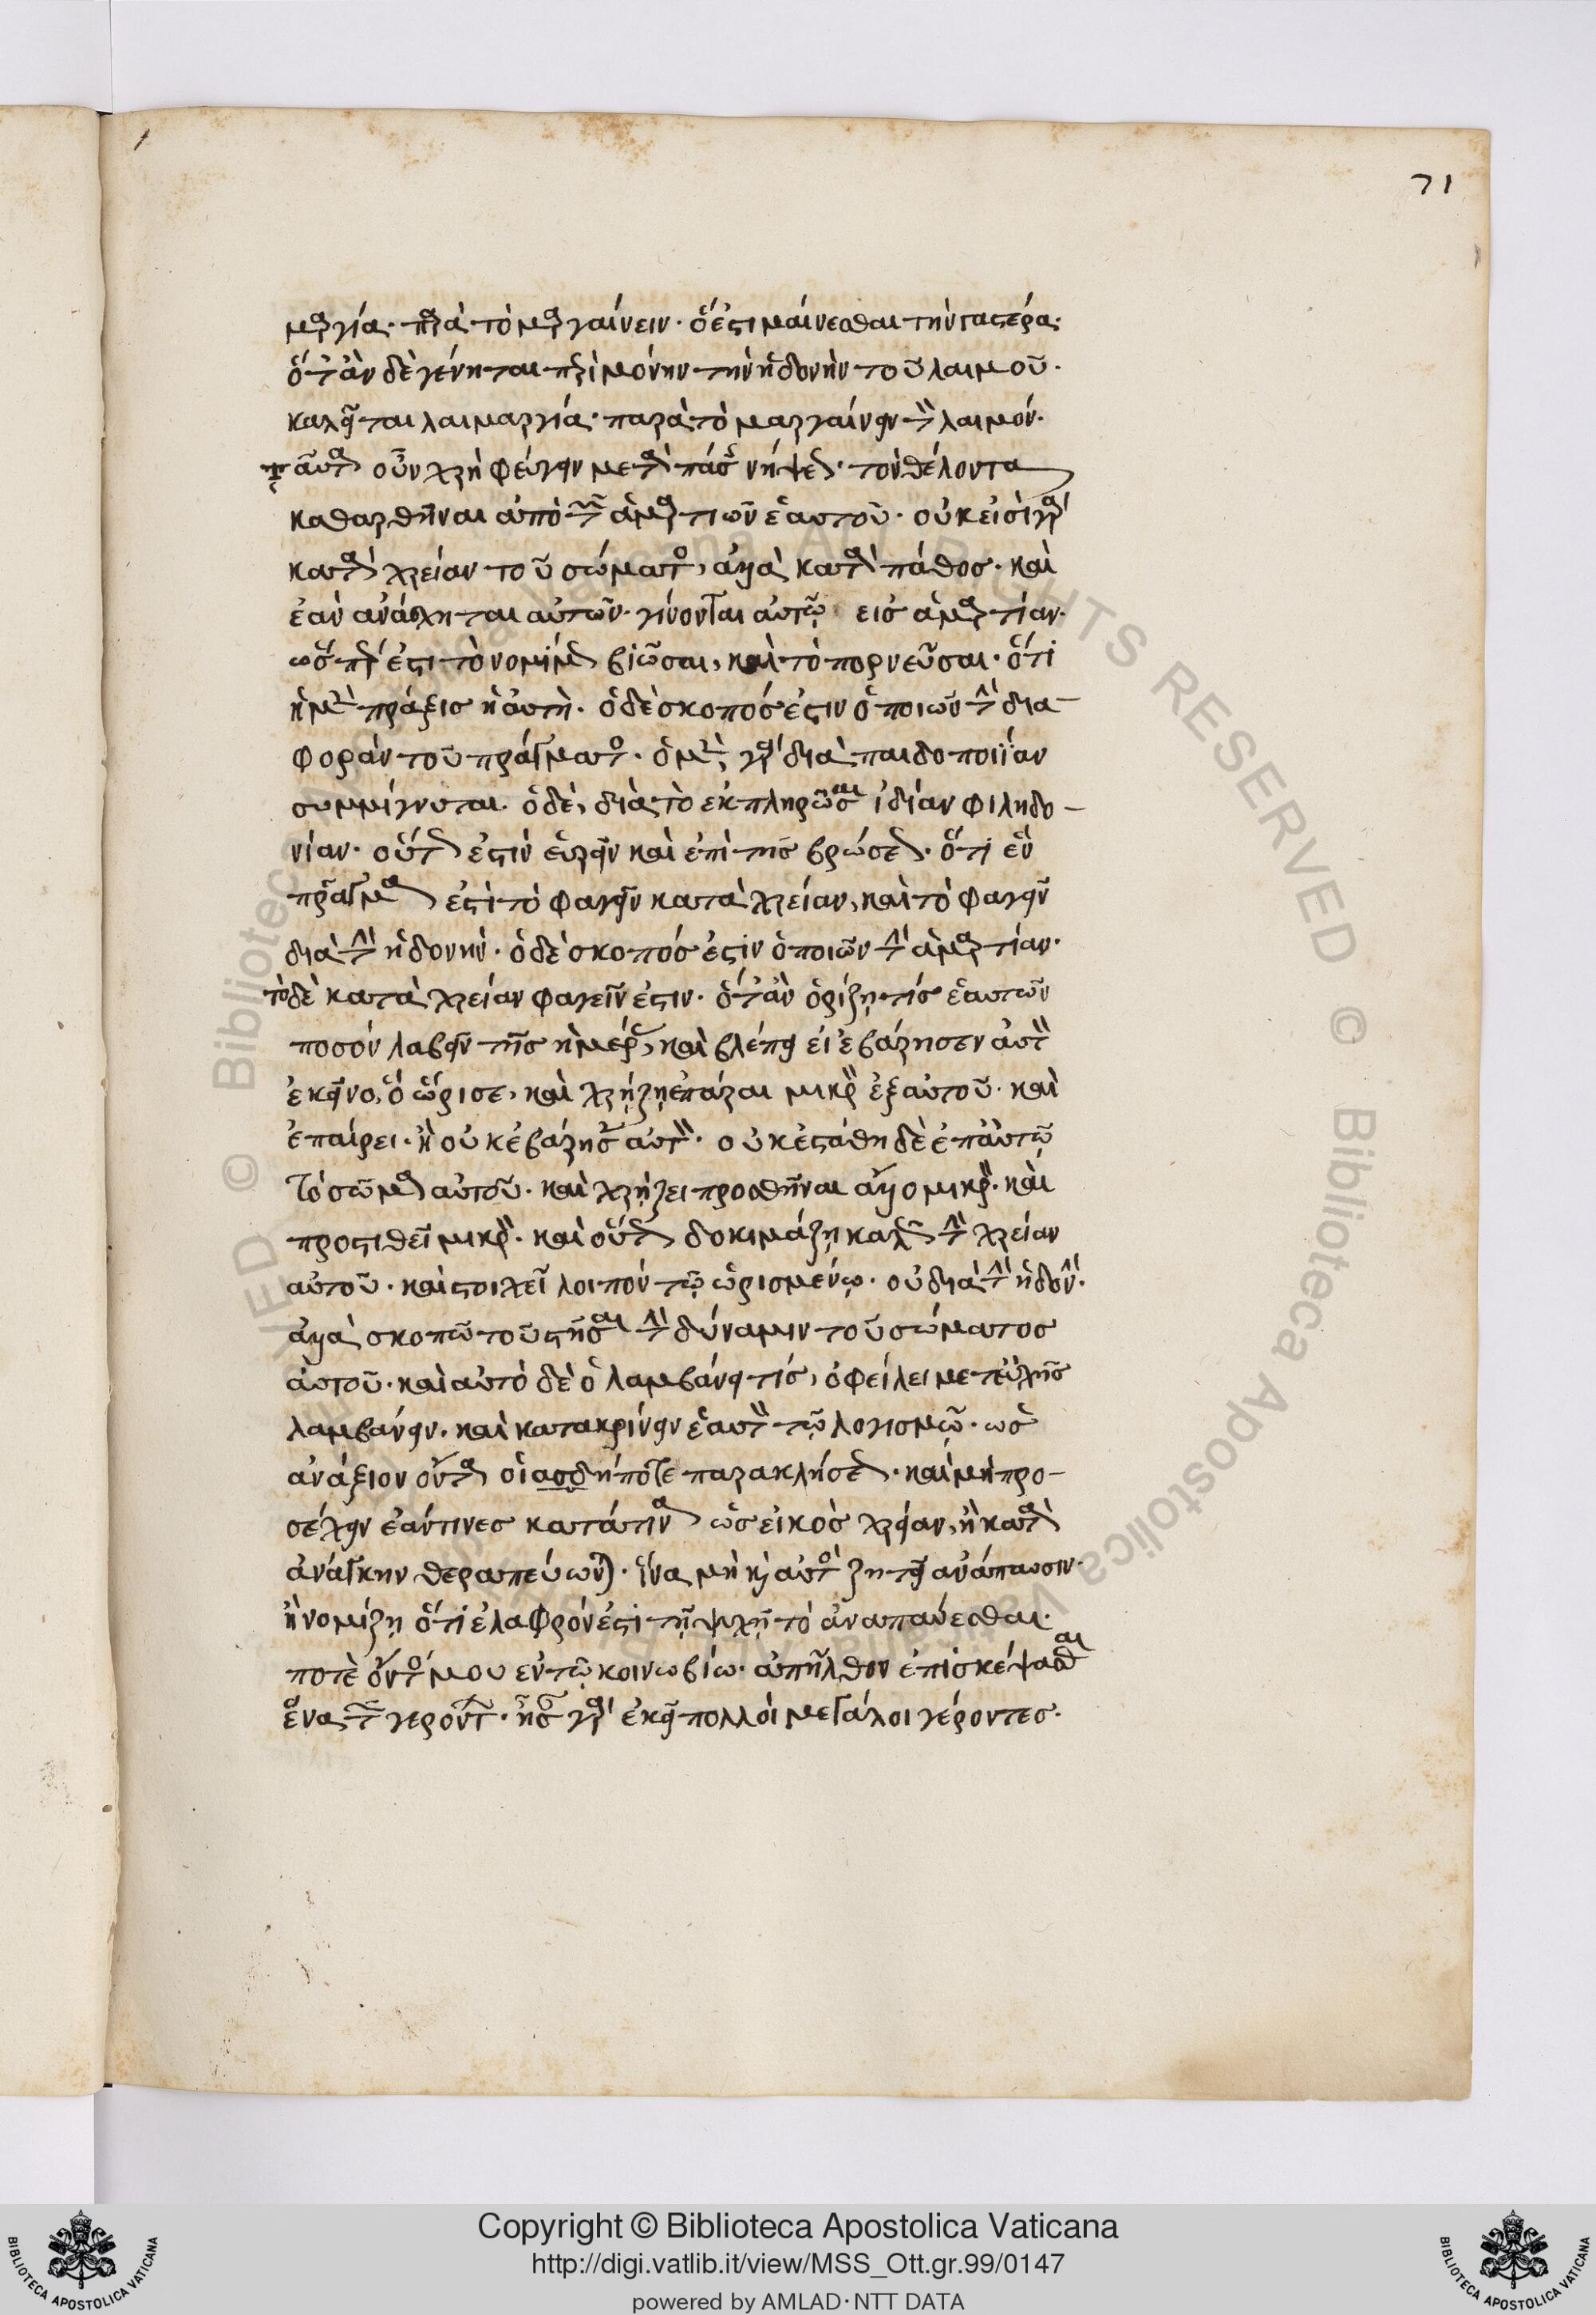 71
μαργία· παρὰ τὸ μαργαίνειν· ὅ ἐστι μαίνεσθαι τὴν γαστέρα·
ὅτ' ἂν δὲ γένηται περὶ μόνην τὴν ἡδονὴν τοῦ λαιμοῦ·
καλεῖται λαιμαργία· παρὰ τὸ μαργαίνειν τὸν λαιμόν·
ταῦτα οὖν χρὴ φεύγειν μετὰ πάσης νήψεως· τὸν θέλοντα
καθαρθῆναι ἀπὸ τῶν ἁμαρτιῶν ἑαυτοῦ· οὐκ εἰσὶ γὰρ
κατὰ χρείαν τοῦ σώματος, ἀλλὰ κατὰ πάθος· καὶ
ἐὰν ἀνάσχηται αὐτῶν· γίνονται αὐτῷ εἰς ἁμαρτίαν·
ὥσπερ ἐστὶ τὸ νομίμως βιῶσαι, καὶ τὸ πορνεῦσαι· ὅτι
ἡ μὲν πράξις ἡ αὐτὴ· ὁ δὲ σκοπός ἐστιν ὁ ποιῶν τὴν δια-
φορὰν τοῦ πράγματος· ὁ μὲν γὰρ διὰ παιδοποιΐαν
συμμίγνυται· ὁ δὲ, διὰ τὸ ἐκπληρῶσαι ἰδίαν φιληδο-
νίαν· οὕτως ἐστὶν εὑρεῖν καὶ ἐπὶ τῆς βρώσεως· ὅτι ἓν
πρᾶγμα ἐστὶ τὸ φαγεῖν κατὰ χρείαν, καὶ τὸ φαγεῖν
διὰ τὴν ἡδονήν· ὁ δὲ σκοπός ἐστιν ὁ ποιῶν τὴν ἁμαρτίαν·
τὸ δὲ κατὰ χρείαν φαγεῖν ἐστιν· ὅτ' ἂν ὁρίζῃ τίς ἑαυτῶν
ποσόν λαβεῖν τῆς ἡμέρας, καὶ βλέπει εἰ ἐβάρησεν αὐτὸν
ἐκεῖνο, ὅ ὥρισε, καὶ χρῄζῃ ἐπάραι μικρὸν ἐξ αὐτοῦ· καὶ
ἐπαίρει· ἢ οὐκ ἐβάρησεν αὐτὸν· οὐκ ἐστάθη δὲ ἐπ' αὐτῷ
τὸ σῶμα αὐτοῦ· καὶ χρῄζει προσθῆναι ἄλλο μικρὸν· καὶ
προστιθεῖ μικρὸν· καὶ οὕτως δοκιμάζῃ καλῶς τὴν χρείαν
αὐτοῦ· καὶ στοιχεῖ λοιπόν τῷ ὡρισμένῳ· οὐ διὰ τὴν ἡδονὴν·
ἀλλὰ σκοπῷ τοῦ στῆσαι τὴν δύναμιν τοῦ σώματος
αὐτοῦ· καὶ αὐτό δὲ ὃ λαμβάνει τίς, ὀφείλει μετ' εὐχῆς
λαμβάνειν· καὶ κατακρίνειν ἑαυτὸν τῷ λογισμῷ· ὡς
ἀνάξιον ὄντα οἱασδήποτε παρακλήσεως· καὶ μὴ προ-
σέχειν ἐάν τινες κατά τινα ὡς εἰκὸς χρείαν, ἢ κατὰ
ἀνάγκην θεραπεύωνται· ἵνα μὴ καὶ αὐτὸς ζητεῖ ἀνάπαυσιν·
ἢ νομίζῃ ὅτι ἐλαφρόν ἐστι τῇ ψυχῇ τὸ ἀναπαύεσθαι·
ποτὲ ὄντος μου ἐν τῷ κοινωβίω· ἀπῆλθον ἐπισκέψασθαι
ἕνα τῶν γερόντων· ἦσαν γὰρ ἐκεῖ πολλοὶ μεγάλοι γέροντες·
© Biblioteca Apostolica Vaticana ALL RIGHTS RESERVED © Biblioteca Apostolica Vaticana
Copyright © Biblioteca Apostolica Vaticana
http://digi.vatlib.it/view/MSS_Ott.gr.99/0147
powered by AMLAD·NTT DATA
BIBLIOTECA APOSTOLICA VATICANA
BIBLIOTECA APOSTOLICA VATICANA